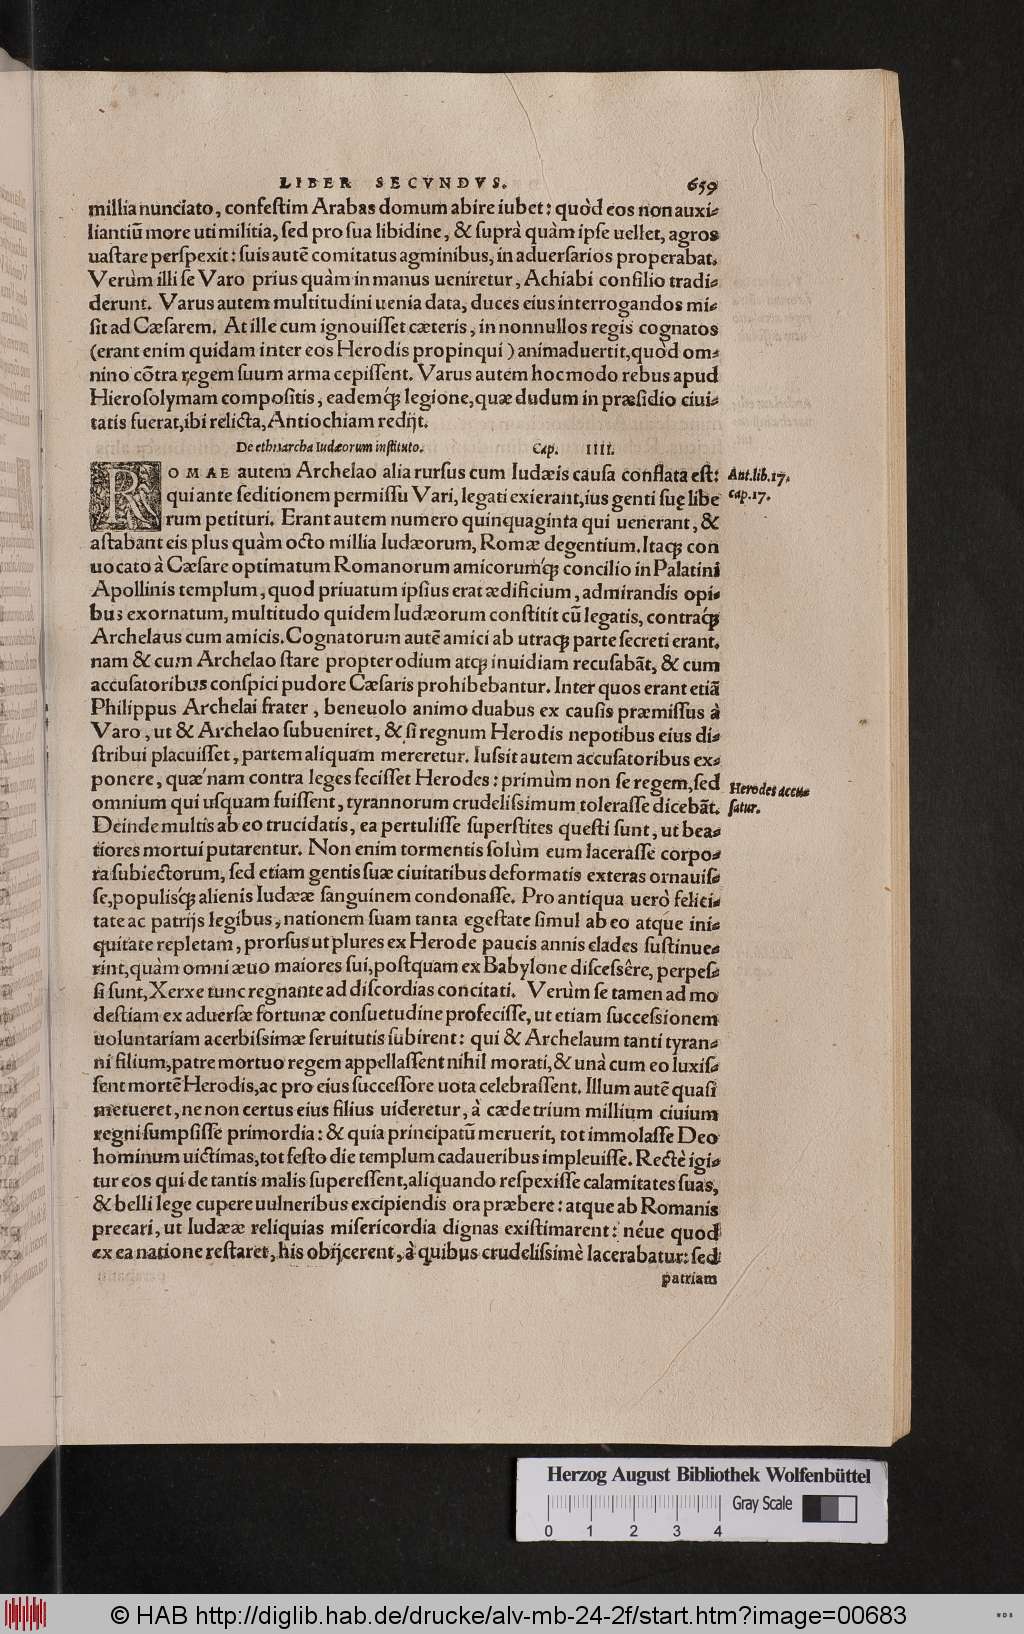 LIBER SECVNDVS. 659
millia nunciato, confeſtim Arabas domum abire iubet: quòd eos non auxi⸗
liantiũ more uti militia, ſed pro ſua libidine, & ſuprà quàm ipſe uellet, agros
uaſtare perſpexit: ſuis autẽ comitatus agminibus, in aduerſarios properabat.
Verùm illi ſe Varo prius quàm in manus ueniretur, Achiabi conſilio tradi⸗
derunt. Varus autem multitudini uenia data, duces eius interrogandos mi⸗
ſit ad Cæſarem. At ille cum ignouiſſet cæteris, in nonnullos regis cognatos
(erant enim quidam inter eos Herodis propinqui) animaduertit, quòd om⸗
nino cõtra regem ſuum arma cepiſſent. Varus autem hoc modo rebus apud
Hieroſolymam compoſitis, eademq́; legione, quæ dudum in præſidio ciui⸗
tatis fuerat, ibi relicta, Antiochiam redijt.
De ethnarcha Iudæorum inſtituto. Cap. IIII.
ROMAE autem Archelao alia rurſus cum Iudæis cauſa conflata eſt: Ant.lib.17.
qui ante ſeditionem permiſſu Vari, legati exierant, ius genti ſuę libe cap.17.
rum petituri. Erant autem numero quinquaginta qui uenerant, &
aſtabant eis plus quàm octo millia Iudæorum, Romæ degentium. Itaq; con
uocato à Cæſare optimatum Romanorum amicorumq́; concilio in Palatini
Apollinis templum, quod priuatum ipſius erat ædificium, admirandis opi⸗
bus exornatum, multitudo quidem Iudæorum conſtitit cũ legatis, contraq́;
Archelaus cum amicis. Cognatorum autẽ amici ab utraq; parte ſecreti erant.
nam & cum Archelao ſtare propter odium atq; inuidiam recuſabãt, & cum
accuſatoribus conſpici pudore Cæſaris prohibebantur. Inter quos erant etiã
Philippus Archelai frater, beneuolo animo duabus ex cauſis præmiſſus à
Varo, ut & Archelao ſubueniret, & ſi regnum Herodis nepotibus eius di⸗
ſtribui placuiſſet, partem aliquam mereretur. Iuſsit autem accuſatoribus ex⸗
ponere, quæ´nam contra leges feciſſet Herodes: primùm non ſe regem, ſed Herodes accu⸗
omnium qui uſquam fuiſſent, tyrannorum crudeliſsimum toleraſſe dicebãt. ſatur.
Deinde multis ab eo trucidatis, ea pertuliſſe ſuperſtites queſti ſunt, ut bea⸗
tiores mortui putarentur. Non enim tormentis ſolùm eum laceraſſe corpo⸗
ra ſubiectorum, ſed etiam gentis ſuæ ciuitatibus deformatis exteras ornauiſ⸗
ſe, populisq́; alienis Iudææ ſanguinem condonaſſe. Pro antiqua uerò felici⸗
tate ac patrijs legibus, nationem ſuam tanta egeſtate ſimul ab eo atque ini⸗
quitate repletam, prorſus ut plures ex Herode paucis annis clades ſuſtinue⸗
rint, quàm omni æuo maiores ſui, poſtquam ex Babylone diſceſsêre, perpeſ⸗
ſi ſunt, Xerxe tunc regnante ad diſcordias concitati. Verùm ſe tamen ad mo
deſtiam ex aduerſæ fortunæ conſuetudine profeciſſe, ut etiam ſucceſsionem
uoluntariam acerbiſsimæ ſeruitutis ſubirent: qui & Archelaum tanti tyran⸗
ni filium, patre mortuo regem appellaſſent nihil morati, & unà cum eo luxiſ⸗
ſent mortẽ Herodis, ac pro eius ſucceſſore uota celebraſſent. Illum autẽ quaſi
metueret, ne non certus eius filius uideretur, à cæde trium millium ciuium
regni ſumpſiſſe primordia: & quia principatũ meruerit, tot immolaſſe Deo
hominum uictimas, tot feſto die templum cadaueribus impleuiſſe. Rectè igi⸗
tur eos qui de tantis malis ſupereſſent, aliquando reſpexiſſe calamitates ſuas,
& belli lege cupere uulneribus excipiendis ora præbere: atque ab Romanis
precari, ut Iudææ reliquias miſericordia dignas exiſtimarent: néue quod
ex ea natione reſtaret, his obijcerent, à quibus crudeliſsimè lacerabatur: ſed
patriam
Herzog August Bibliothek Wolfenbüttel
Gray Scale
0 1 2 3 4
© HAB http://diglib.hab.de/drucke/alv-mb-24-2f/start.htm?image=00683